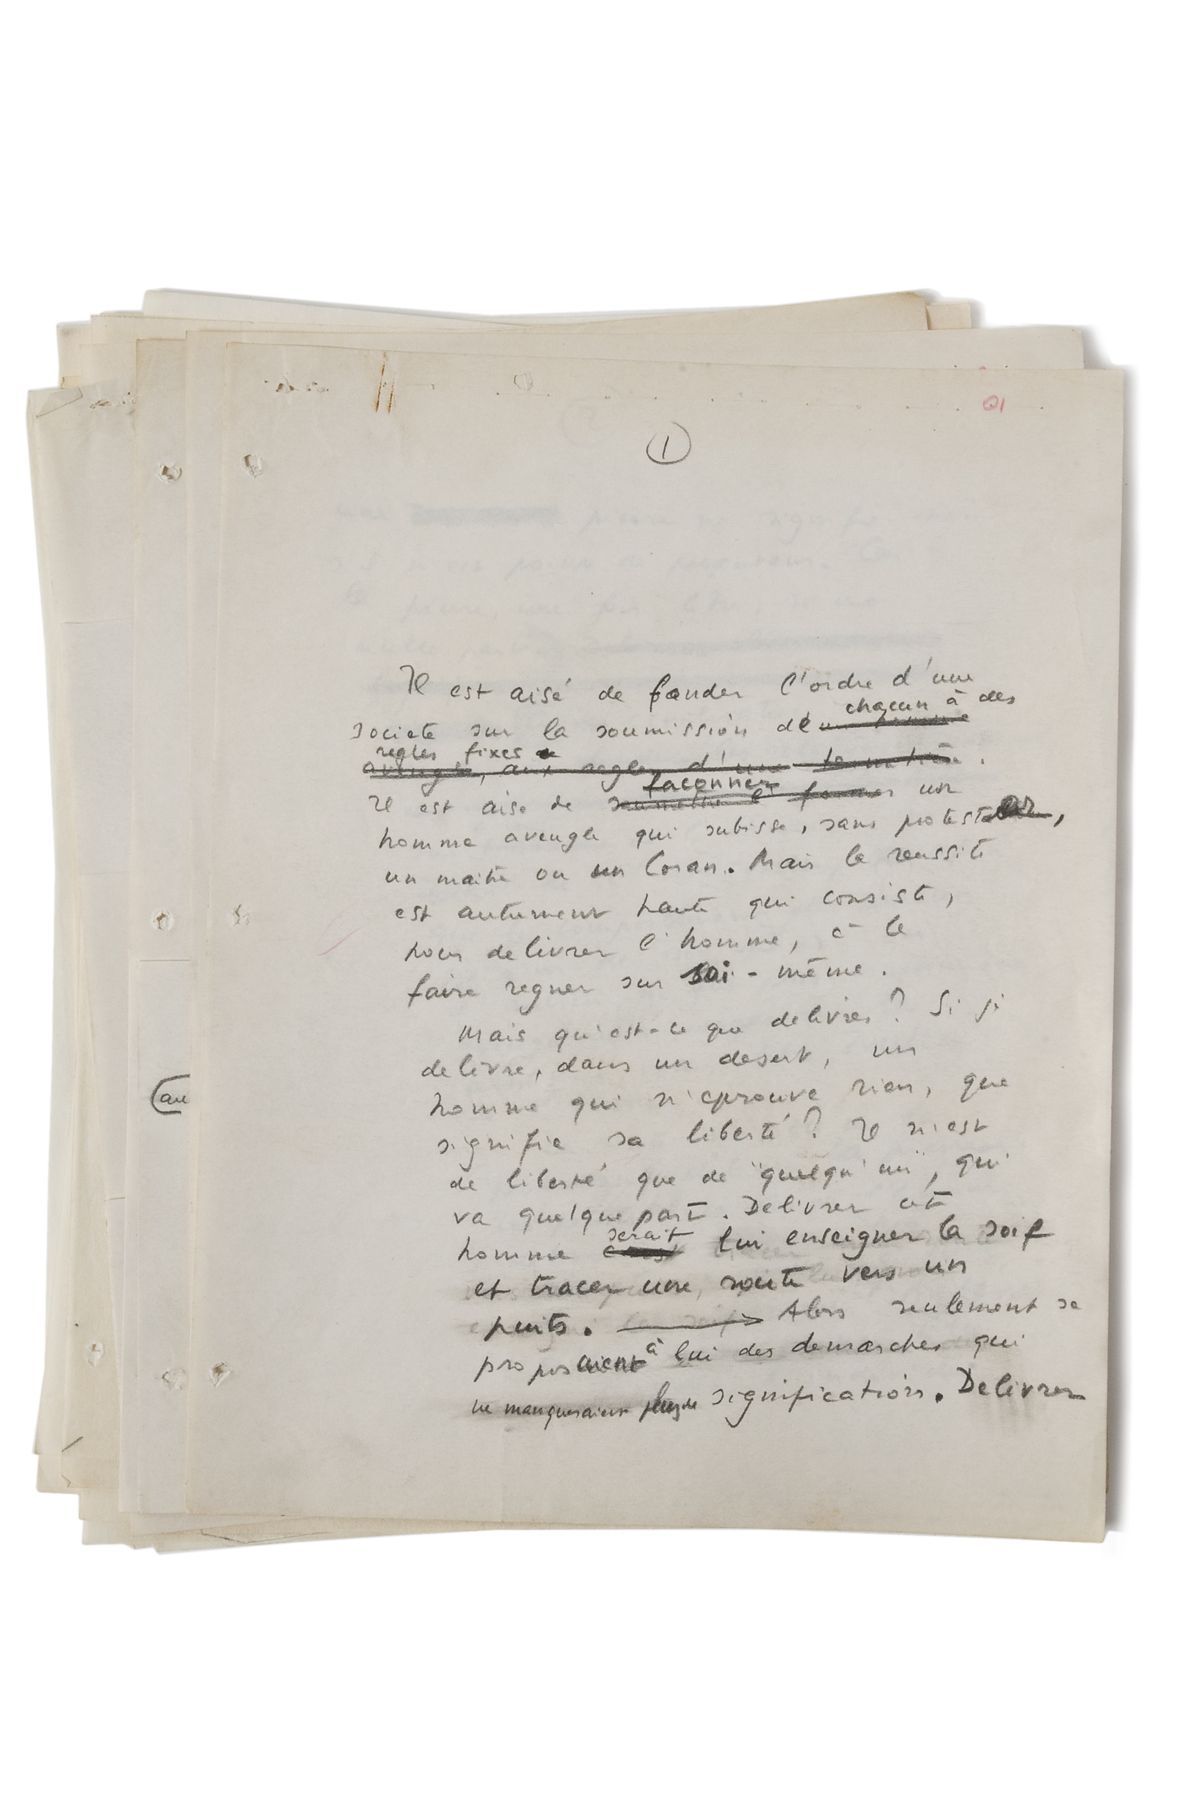 01
1
Il est aisé de fonder l'ordre d'une
chacun à des
societe sur la soumission de
regles fixes
aveugle, aux regles d'une .
façonner
Il est aise de un
homme aveugle qui subisse, sans protester,
un maitre ou un Coran. Mais la reussite
est autrement haute qui consiste,
pour delivrer l'homme, à le
faire regner sur soi-même.
Mais qu'est-ce que delivrer ? Si je
delivre, dans un desert, un
homme qui n'eprouve rien, que
signifie sa liberté ? Il n'est
de liberté que de "quelqu'un", qui
va quelque part. Delivrer cet
serait
homme lui enseigner la soif
et tracer une route vers un
puits. Alors seulement se
proposaient à lui des demarches qui
ne manqueraient plus de signification. Delivrer
au